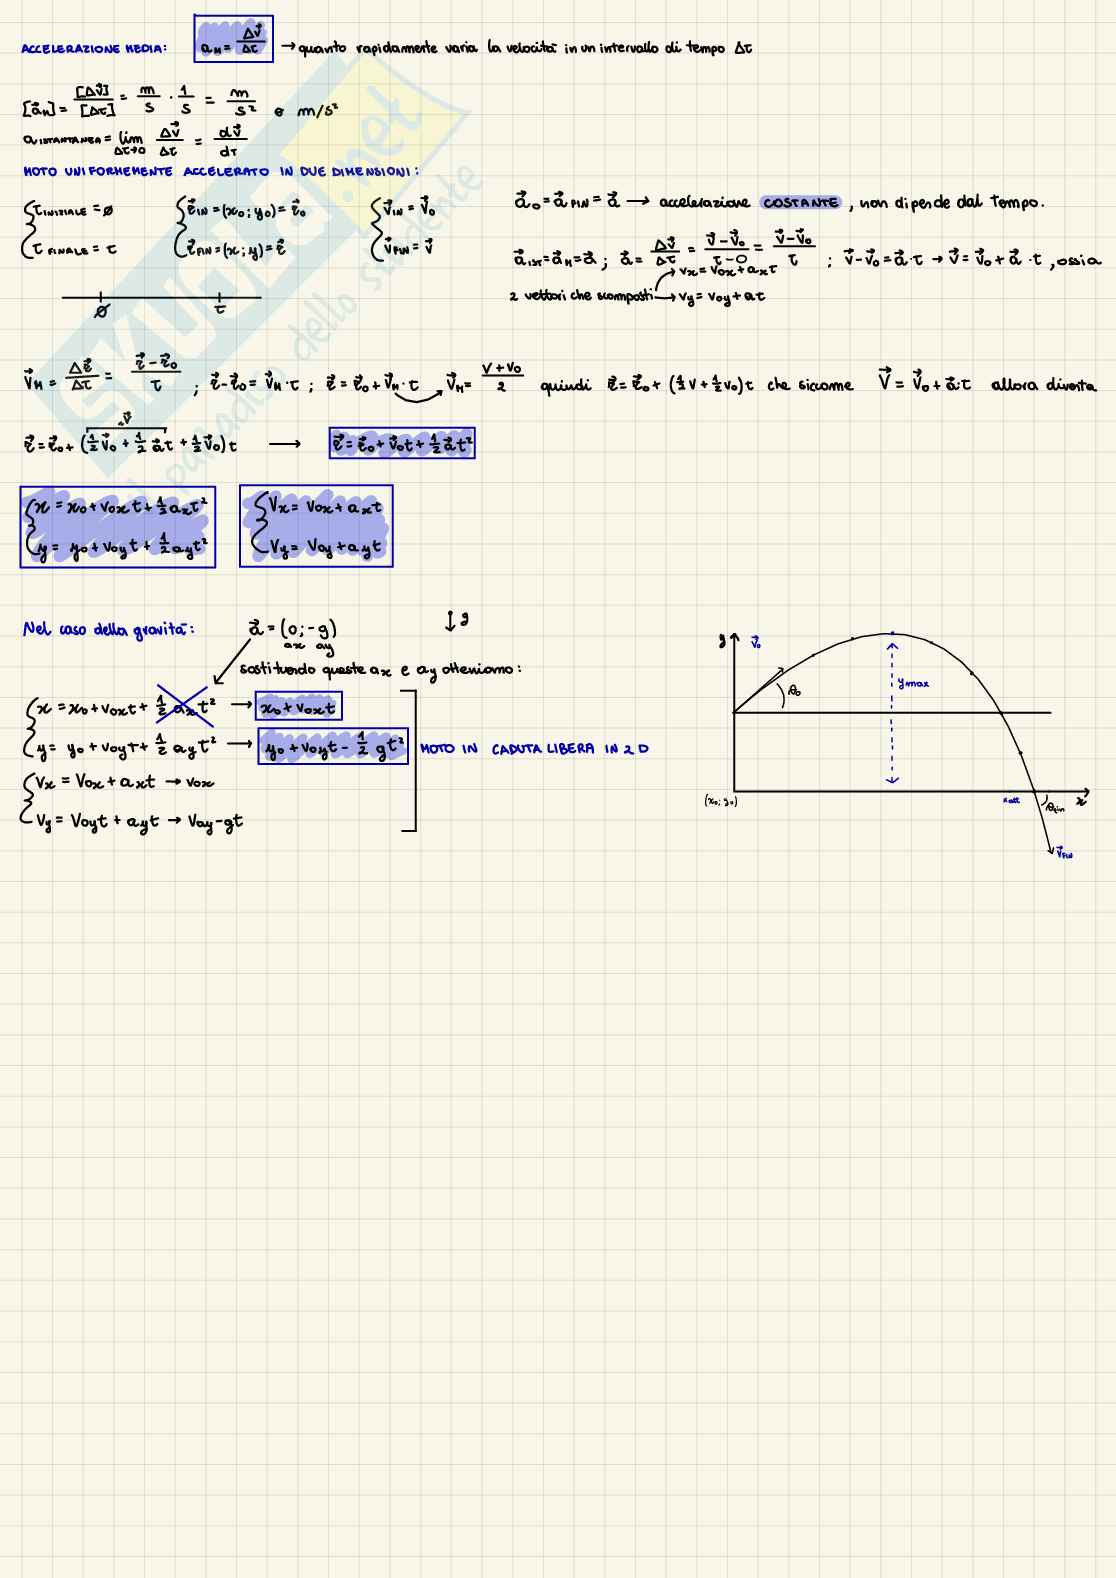 ACCELERAZIONE MEDIA: a_M = Δv⃗/Δt → quanto rapidamente varia la velocità in un intervallo di tempo Δt
[a⃗_M] = [Δv⃗]/[Δt] = m/s · 1/s = m/s² o m/s²
a ISTANTANEA = lim Δt→0 Δv⃗/Δt = dv⃗/dt
MOTO UNIFORMEMENTE ACCELERATO IN DUE DIMENSIONI:
{ t INIZIALE = ∅
t FINALE = t
{ r⃗ IN = (x₀; y₀) = r⃗₀
r⃗ FIN = (x; y) = r⃗
{ v⃗ IN = v⃗₀
v⃗ FIN = v⃗
∅ t
a⃗₀ = a⃗ FIN = a⃗ → accelerazione COSTANTE, non dipende dal tempo.
a⃗ IST = a⃗_M = a⃗ ; a⃗ = Δv⃗/Δt = v⃗-v⃗₀/t-0 = v⃗-v⃗₀/t ; v⃗-v⃗₀ = a⃗·t → v⃗ = v⃗₀ + a⃗·t, ossia
2 vettori che scomposti → vx = v0x + axt
→ vy = v0y + at
v⃗_M = Δr⃗/Δt = r⃗-r⃗₀/t ; r⃗-r⃗₀ = v⃗_M·t ; r⃗ = r⃗₀ + v⃗_M·t v⃗_M = v+v₀/2 quindi r⃗ = r⃗₀ + (½v + ½v₀)t che siccome v⃗ = v⃗₀ + a⃗·t allora diventa
r⃗ = r⃗₀ + (½v⃗₀ + ½a⃗t + ½v⃗₀)t → r⃗ = r⃗₀ + v⃗₀t + ½a⃗t²
{ x = x₀ + v0xt + ½axt²
y = y₀ + v0yt + ½ayt²
{ Vx = v0x + axt
Vy = V0y + ayt
Nel caso della gravità: a⃗ = (0; -g) ↓g
ax ay
sostituendo queste ax e ay otteniamo:
{ x = x₀ + v0xt + ½axt² → x₀ + v0xt
y = y₀ + v0yt + ½ayt² → y₀ + v0yt - ½gt²
MOTO IN CADUTA LIBERA IN 2D
{ vx = V0x + axt → v0x
vy = V0yt + ayt → v0y-gt
y
v⃗₀
θ₀
ymax
(x₀; y₀)
x att
θfin
x
v⃗ FIN
SKUOLA.net
il paradiso dello studente